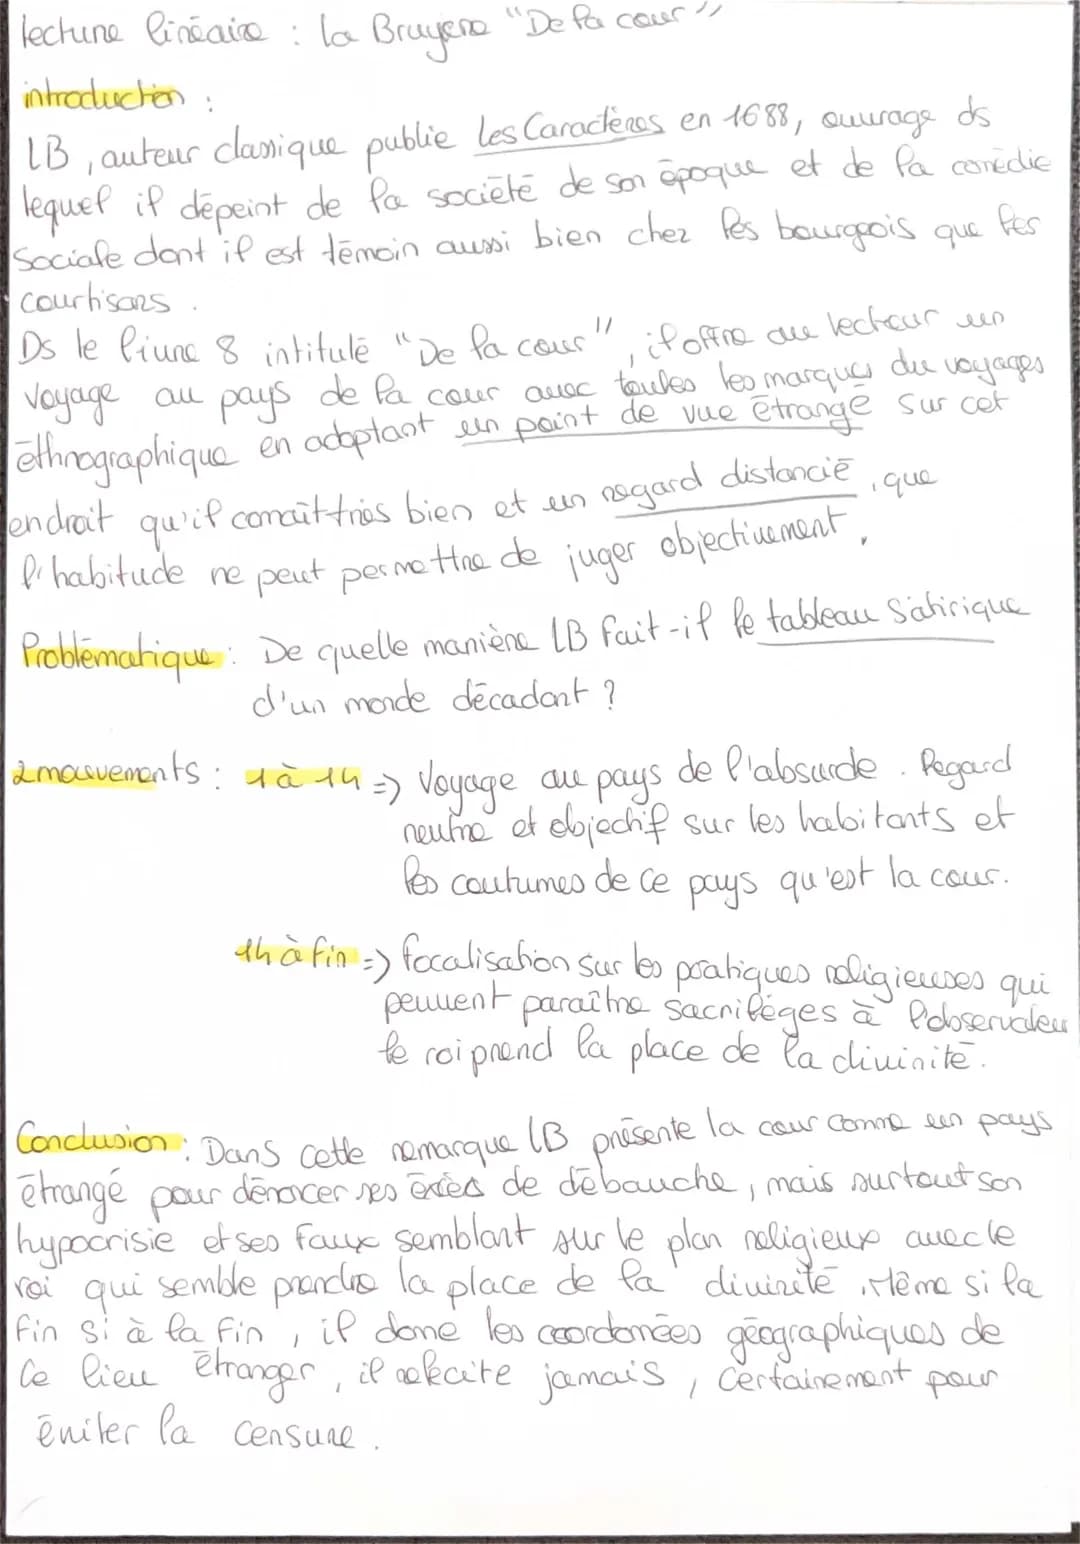 lecture linéaire : la Bruyère "De la cour"
introduction :
LB, auteur classique publie Les Caractères en 1688, ouvrage ds
lequel il dépeint de la société de son époque et de la comédie
Sociale dont il est témoin aussi bien chez les bourgeois que les
courtisans.
Ds le livre 8 intitulé "De la cour", il offre au lecteur un
voyage au pays de la cour avec toutes les marques du voyages
éthnographique en adoptant un point de vue étrangé sur cet
endroit qu'il connaît très bien et un regard distancié, que
l'habitude ne peut permettre de juger objectivement.
Problématique : De quelle manière LB fait-il le tableau satirique
d'un monde décadant ?
2 mouvements : 1 à 14 => Voyage au pays de l'absurde. Regard
neutre et objectif sur les habitants et
les coutumes de ce pays qu'est la cour.
14 à fin => focalisation sur les pratiques religieuses qui
peuvent paraître sacrilèges à l'observateu
le roi prend la place de la divinité.
Conclusion : Dans cette remarque LB présente la cour comme un pays
étrangé pour dénoncer ses excès de débauche, mais surtout son
hypocrisie et ses faux semblant sur le plan religieux avec le
roi qui semble prendre la place de la divinité. Même si la
fin si à la fin, il donne les coordonées géographiques de
ce lieu étranger, il ne le cite jamais, certainement pour
éviter la censure.